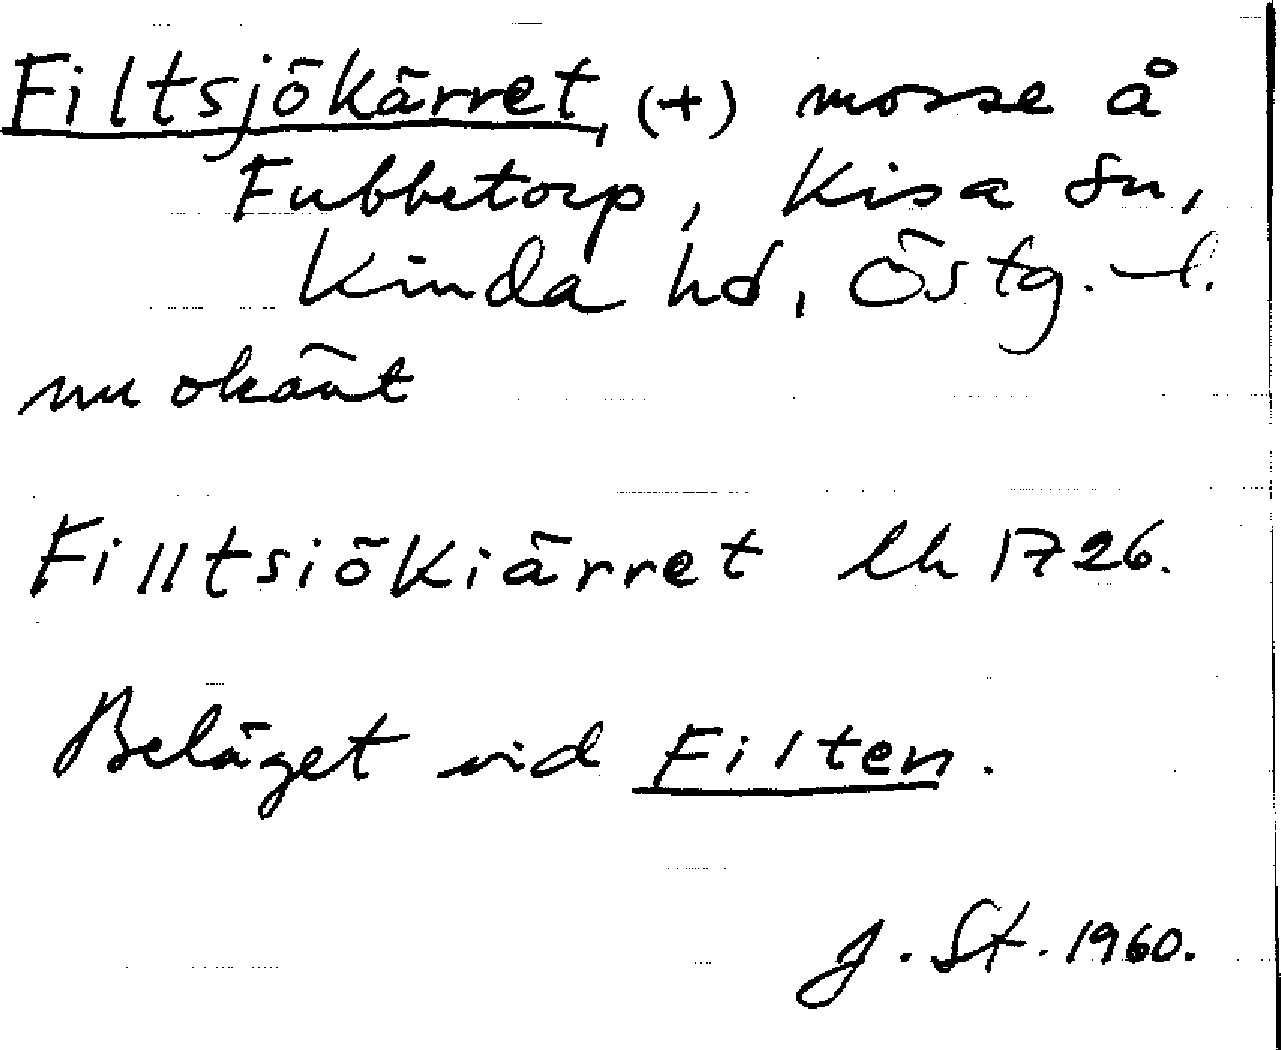 Filtsjökärret, (+) mosse å
Fubbetorp, Kisa sn,
Kinda hd, Östg. l.
nu okänt
Filltsiökiärret lh 1726.
Beläget vid Filten.
J. St. 1960.